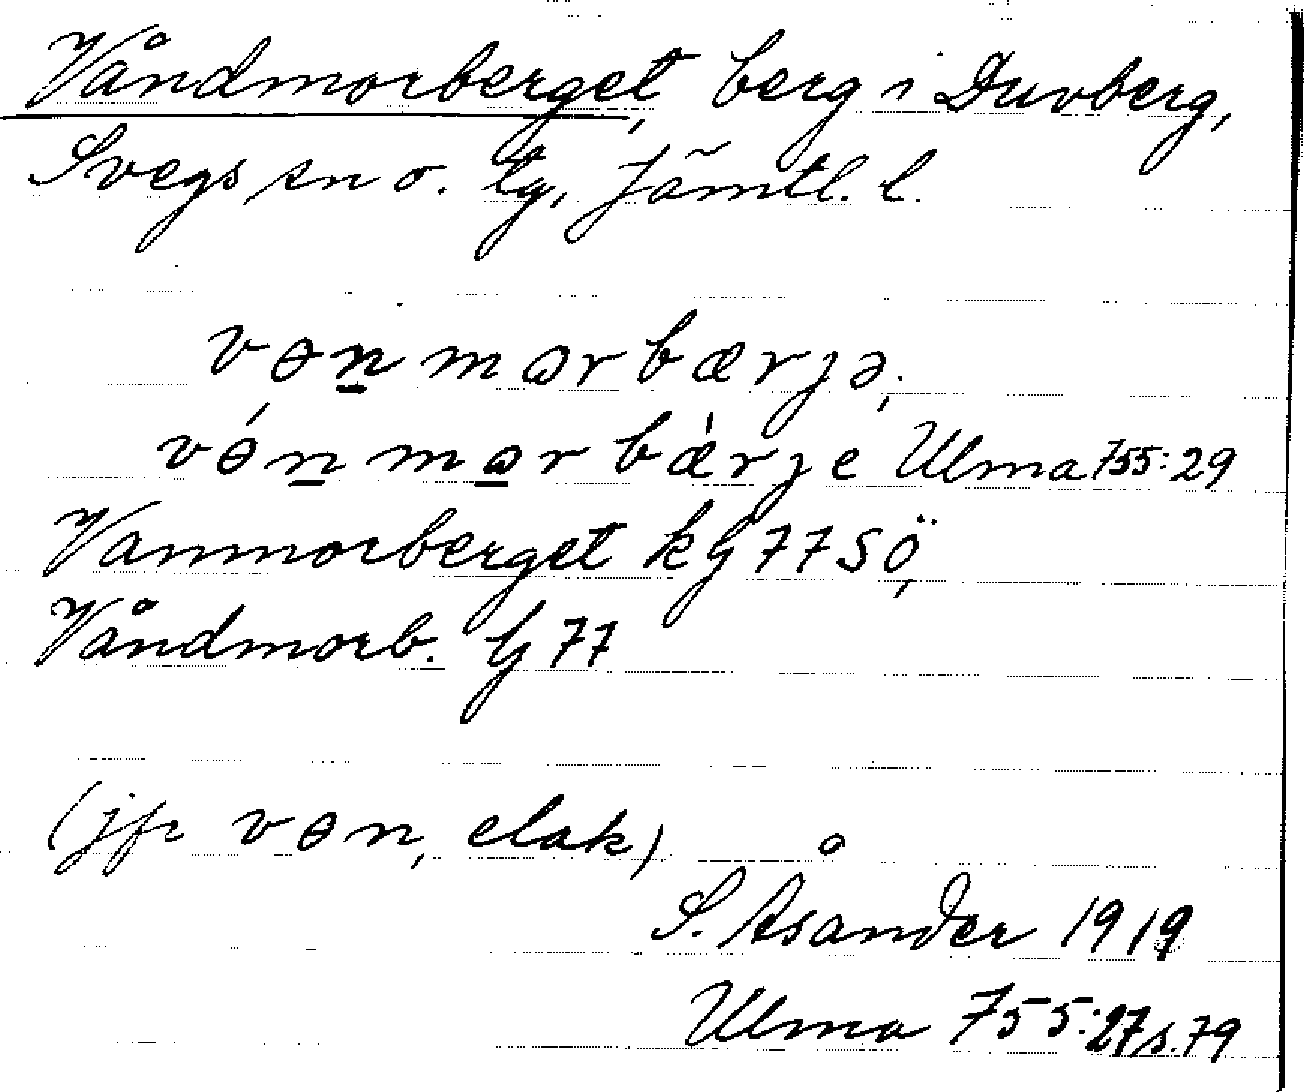 Våndmorberget, berg i Duvberg,
Svegs sn o. tg, Jämtl. l.
vɵn̲mɷrbærjə;
vɵ́n̲mɷ̲rbæ̀rje Ulma 755:29
Vanmorberget k G 77 SÖ,
Våndmorb. G 77
(jfr vɵn, elak)
S. Åsander 1919
Ulma 755:27 s. 79